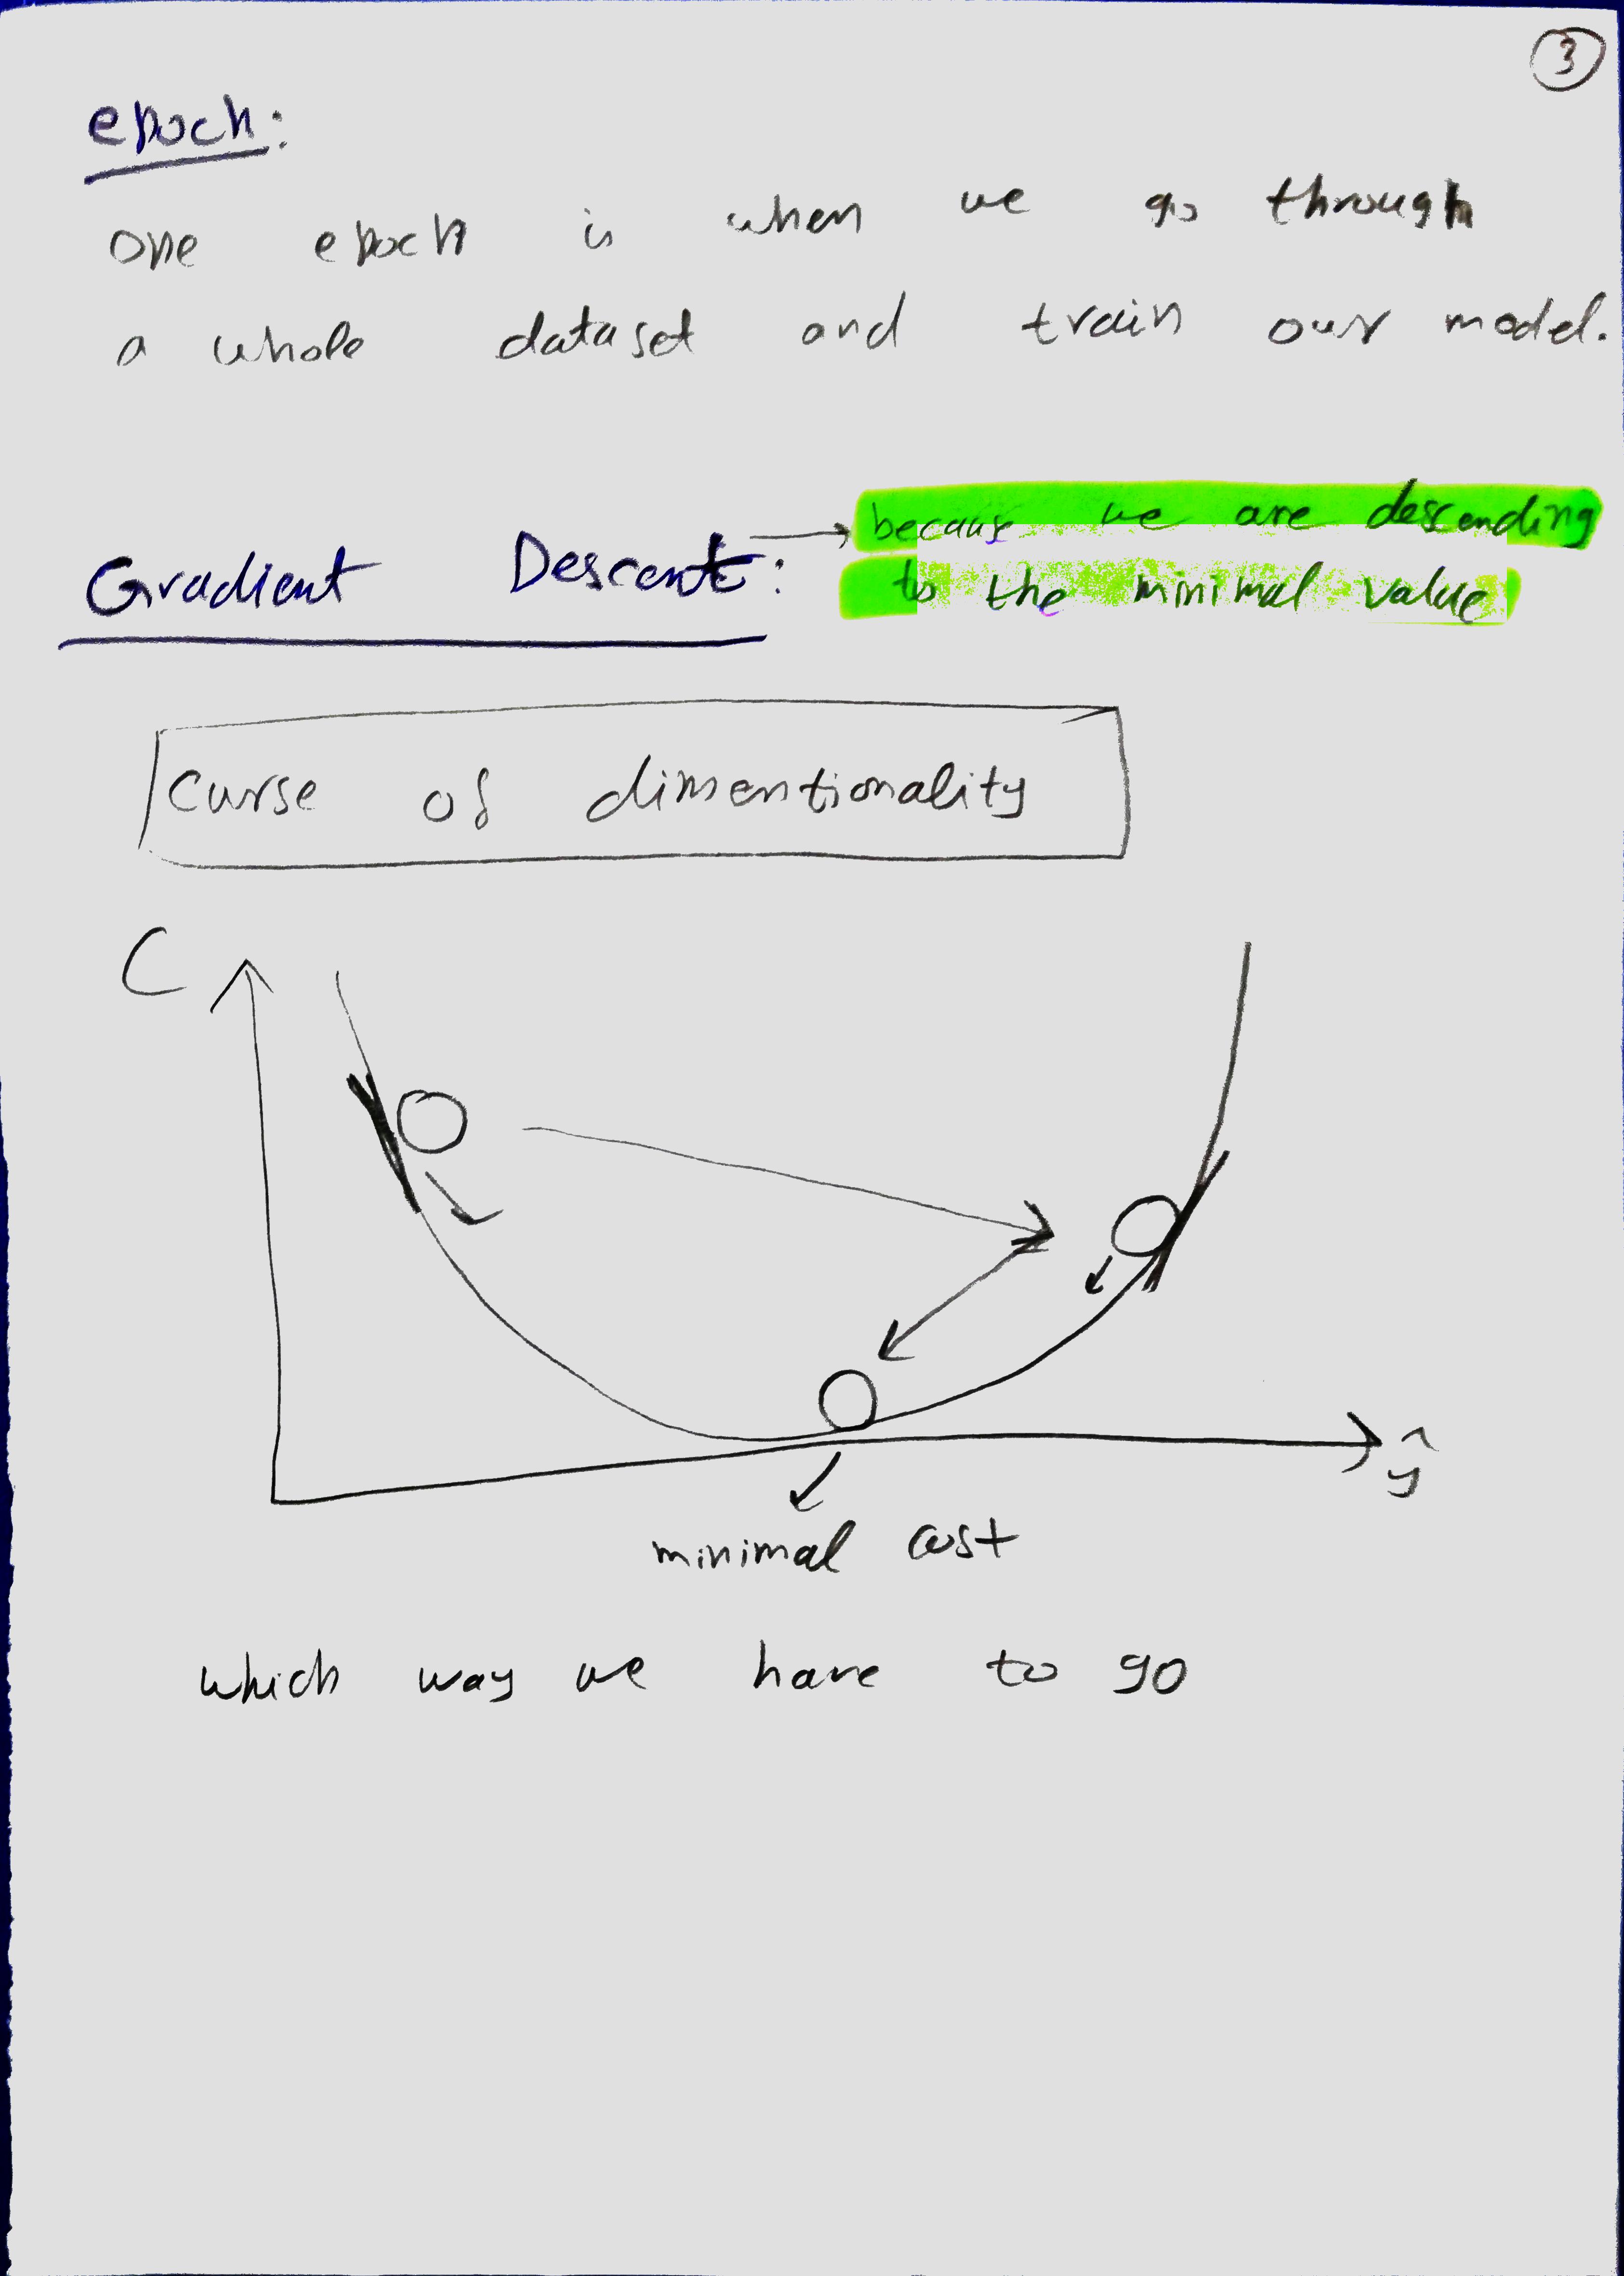 3
epoch:
one epoch is when we go through
a whole dataset and train our model.
because we are descending
Gradient Descent:
to the minimal value
Curse of dimentionality
C
ŷ
minimal cost
which way we have to go